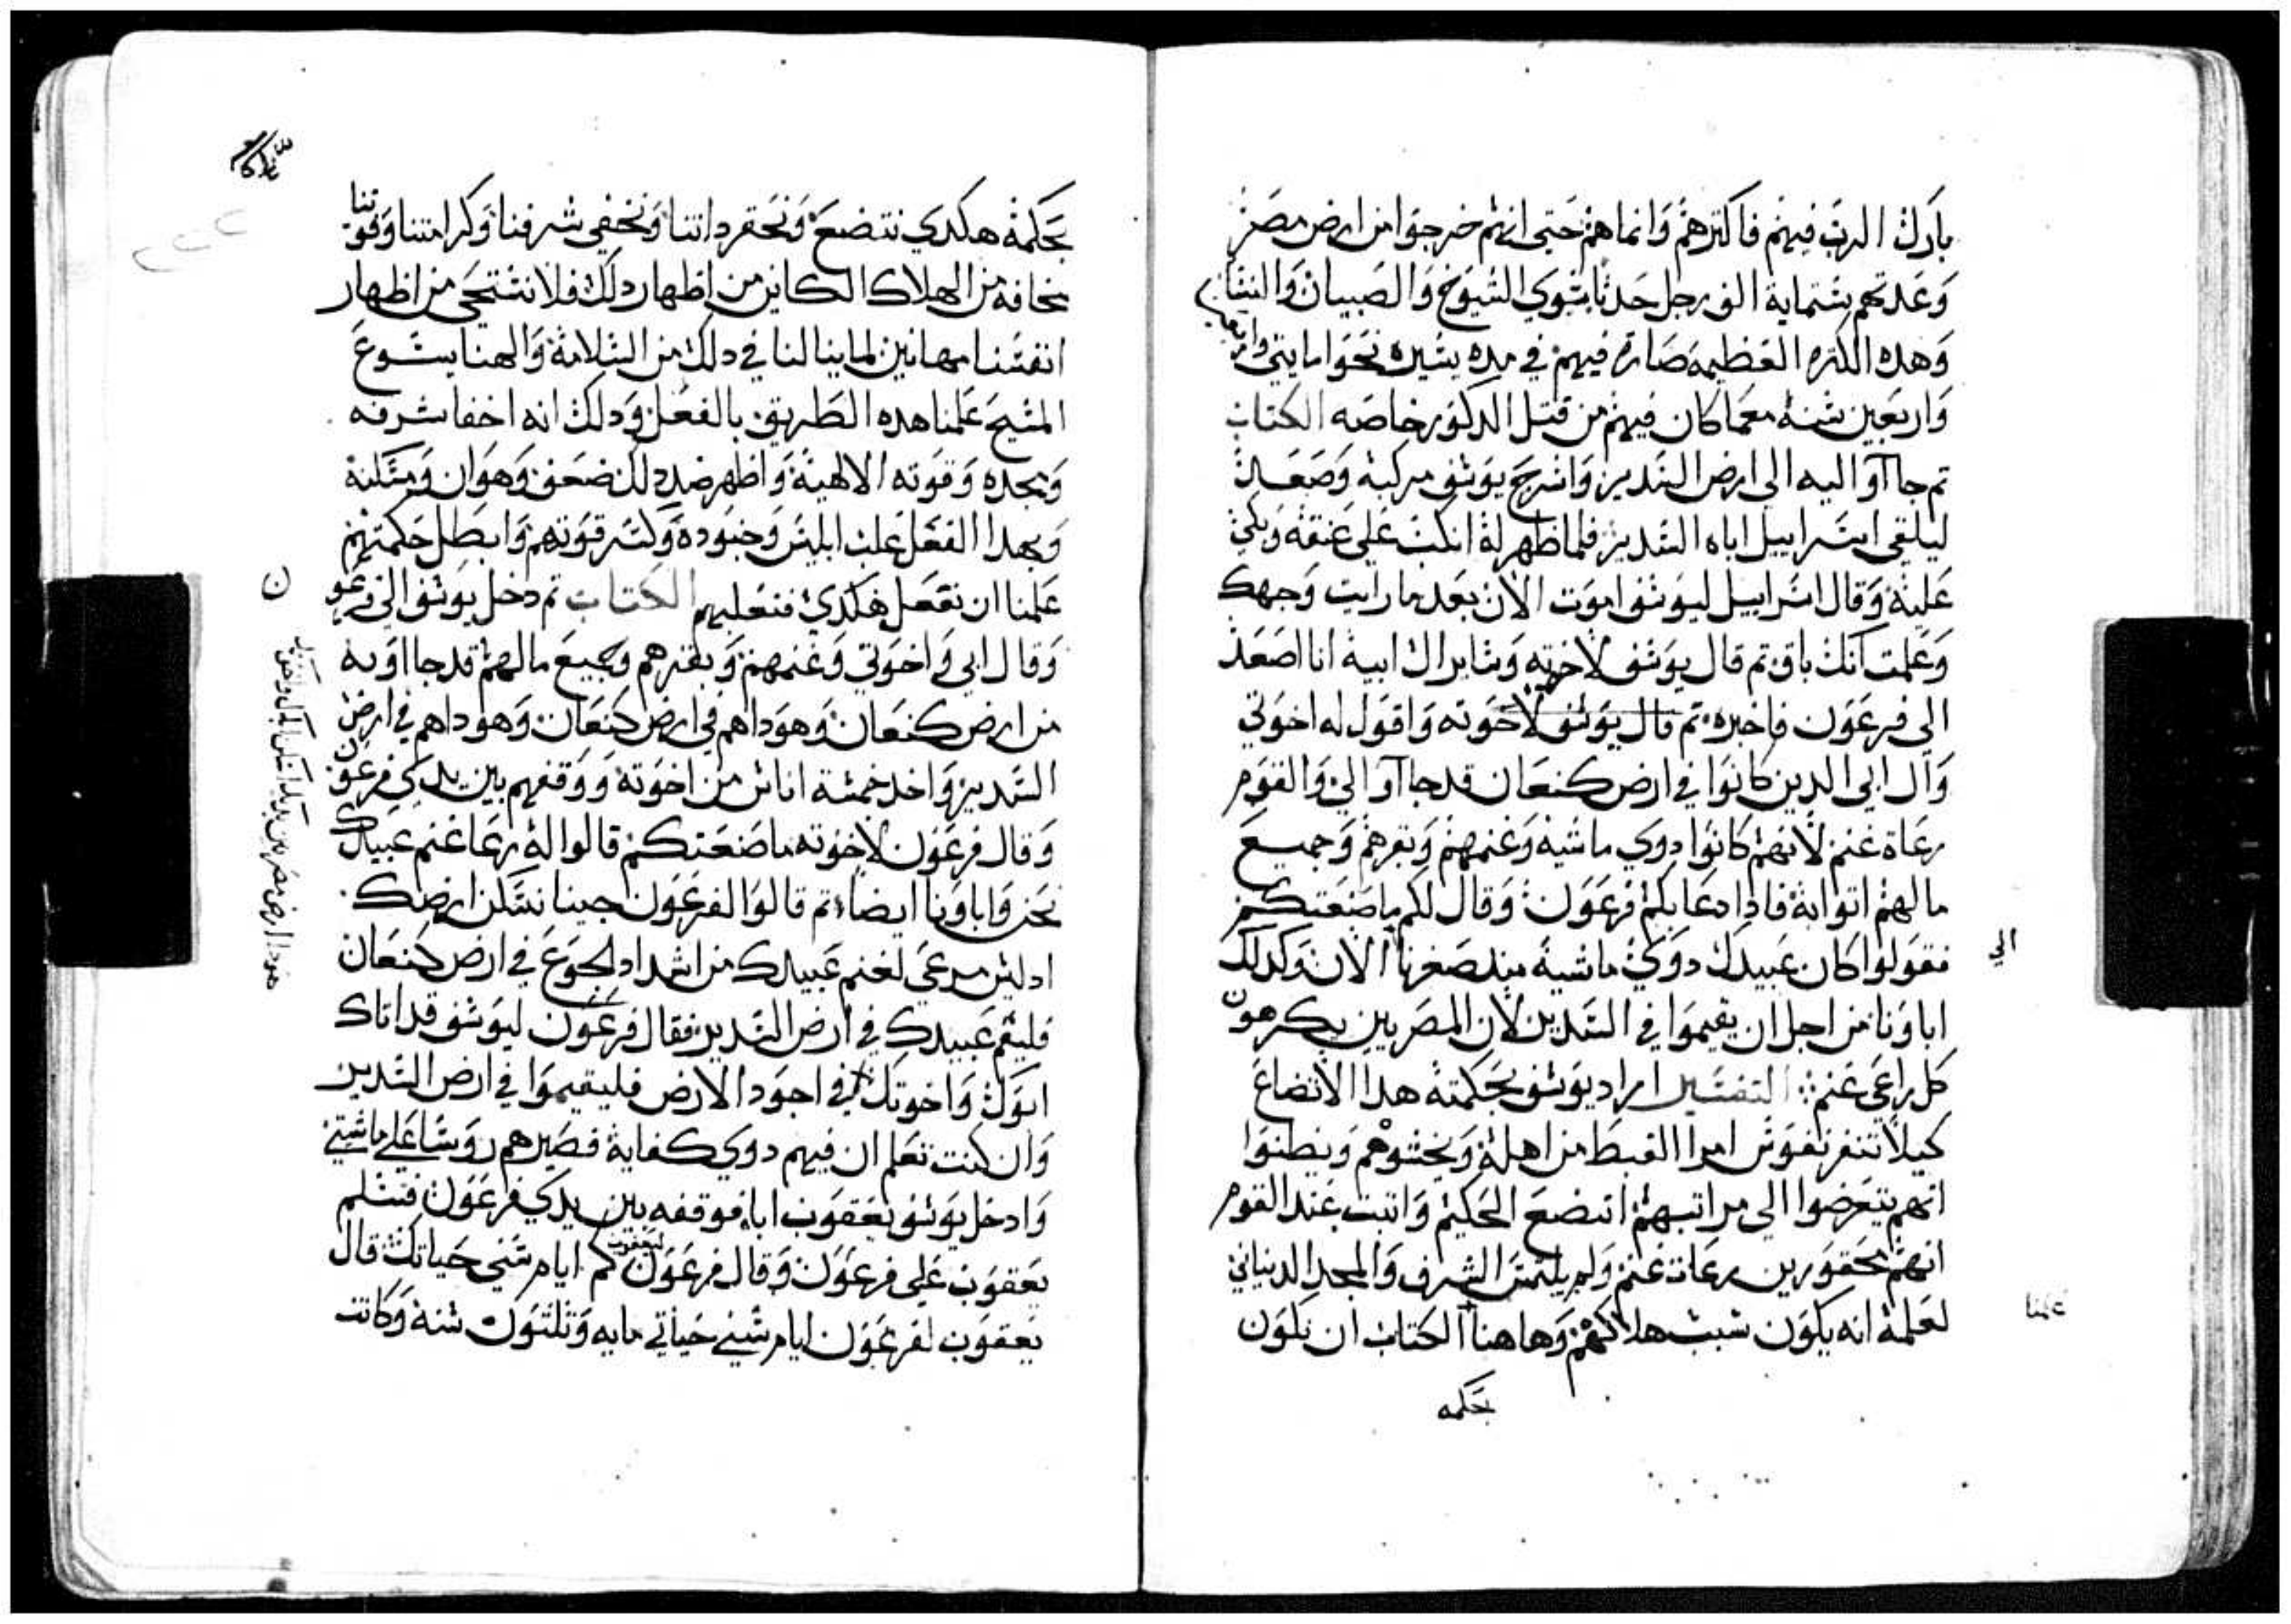 بارك الرب فيهم فاكترهم وانماهم حتى انهم خرجوا من ارض مصر
وعدتهم ستماية الف رجل حدثا سوي الشيوخ والصبيان والنسا
وهده الكتره العظيمه صارة فيهم في مده يسيره نحوا ما يتي وار
واربعين سنة معما كان فيهم من قتل الدكور خاصه الكتاب
تم جاآوا اليه الى ارض السدير واسرج يوسف مركبة وصعد
ليلقى اسراييل اباه السدير فلما ظهر لة انكب على عنقة وبكى
علية وقال اسراييل ليوسف اموت الان بعد ما رايت وجهك
وعلمت انك باق تم قال يوسف لاخوته وساير ال ابية انا اصعد
الى فرعون فاخبره تم قال يوسف لاخوته واقول له اخوتي
وآل ابي الدين كانوا في ارض كنعان قد جاآوا الي والقوم
رعاة غنم لانهم كانوا دوي ماشية وغنمهم وبقرهم وجميع
ما لهم اتوا بة فادا دعا بكم فرعون وقال لكم ما صنعتكم
فقولوا كان عبيدك دوي ماشية مند صغرنا الان وكدلك
الي
اباونا من اجل ان يقيموا في السدير لان المصريين يكرهون
كل راعي غنم التفسير اراد يوسف بحكمتة هدا الاتضاع
كيلا تنفر نفوس امرا القبط من اهلة ويخشوهم ويظنوا
انهم يتعرضوا الى مراتبهم اتضع الحكيم واتبت عند القوم
انهم محقورين رعات غنم ولم يلتمس الشرف والمجد الدنياني
لعلمة انه يكون سبب هلاكهم وهاهنا الكتاب ان نكون
علمنا
بحكمه
بحكمة هكدي نتضع ونحقر داتنا ونخفي شرفنا وكرامتنا وقوتنا
مخافة من الهلاك الكاين من اظهار دلك فلا نستحي من اظهار
انفسنا مهانين لما ينالنا في دلك من السلامة والهنا يسوع
المسيح علمنا هده الطريق بالفعل ودلك انه اخفا شرفه
ومجده وقوته الالهية واظهر ضد دلك ضعف وهوان ومسكنة
وبهدا الفعل غلب ابليس وجنوده وكسر قوتهم وابطل حكمتهم
علمنا ان نفعل هكدي فنغلبهم الكتاب تم دخل يوسف الى فرعون
وقال ابي واخوتي وغنمهم وبقرهم وجميع ما لهم قد جااو به
من ارض كنعان وهوداهم في ارض كنعان وهوداهم في ارض
السدير واخد خمسة اناس من اخوتة ووقفهم بين يدي فرعون
وقال فرعون لاخوته ما صنعتكم قالوا لة رعا غنم عبيدك
نحن واباونا ايضا تم قالوا لفرعون جينا نسكن ارضك
ادليس مرعى لغنم عبيدك من اشداد الجوع في ارض كنعان
فليقم عبيدك في ارض السدير فقال فرعون ليوسف قد اتاك
ابوك واخوتك في اجود الارض فليقيموا في ارض السدير
وان كنت تعلم ان فيهم دوي كفاية فصيرهم روسا على ماشيتي
وادخل يوسف يعقوب اباه فوقفه بين يدي فرعون فسلم
يعقوب على فرعون وقال فرعون ليعقوب كم ايام سني حياتك قال
يعقوب لفرعون ايام سني حياتي مايه وتلتون سنة وكانت